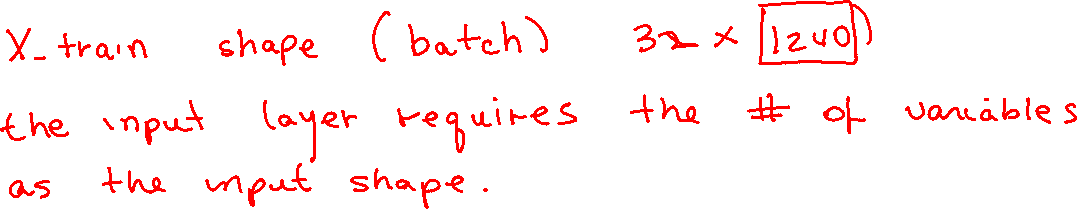 X_train shape (batch) 32 x 1240)
the input layer requires the # of variables
as the input shape.